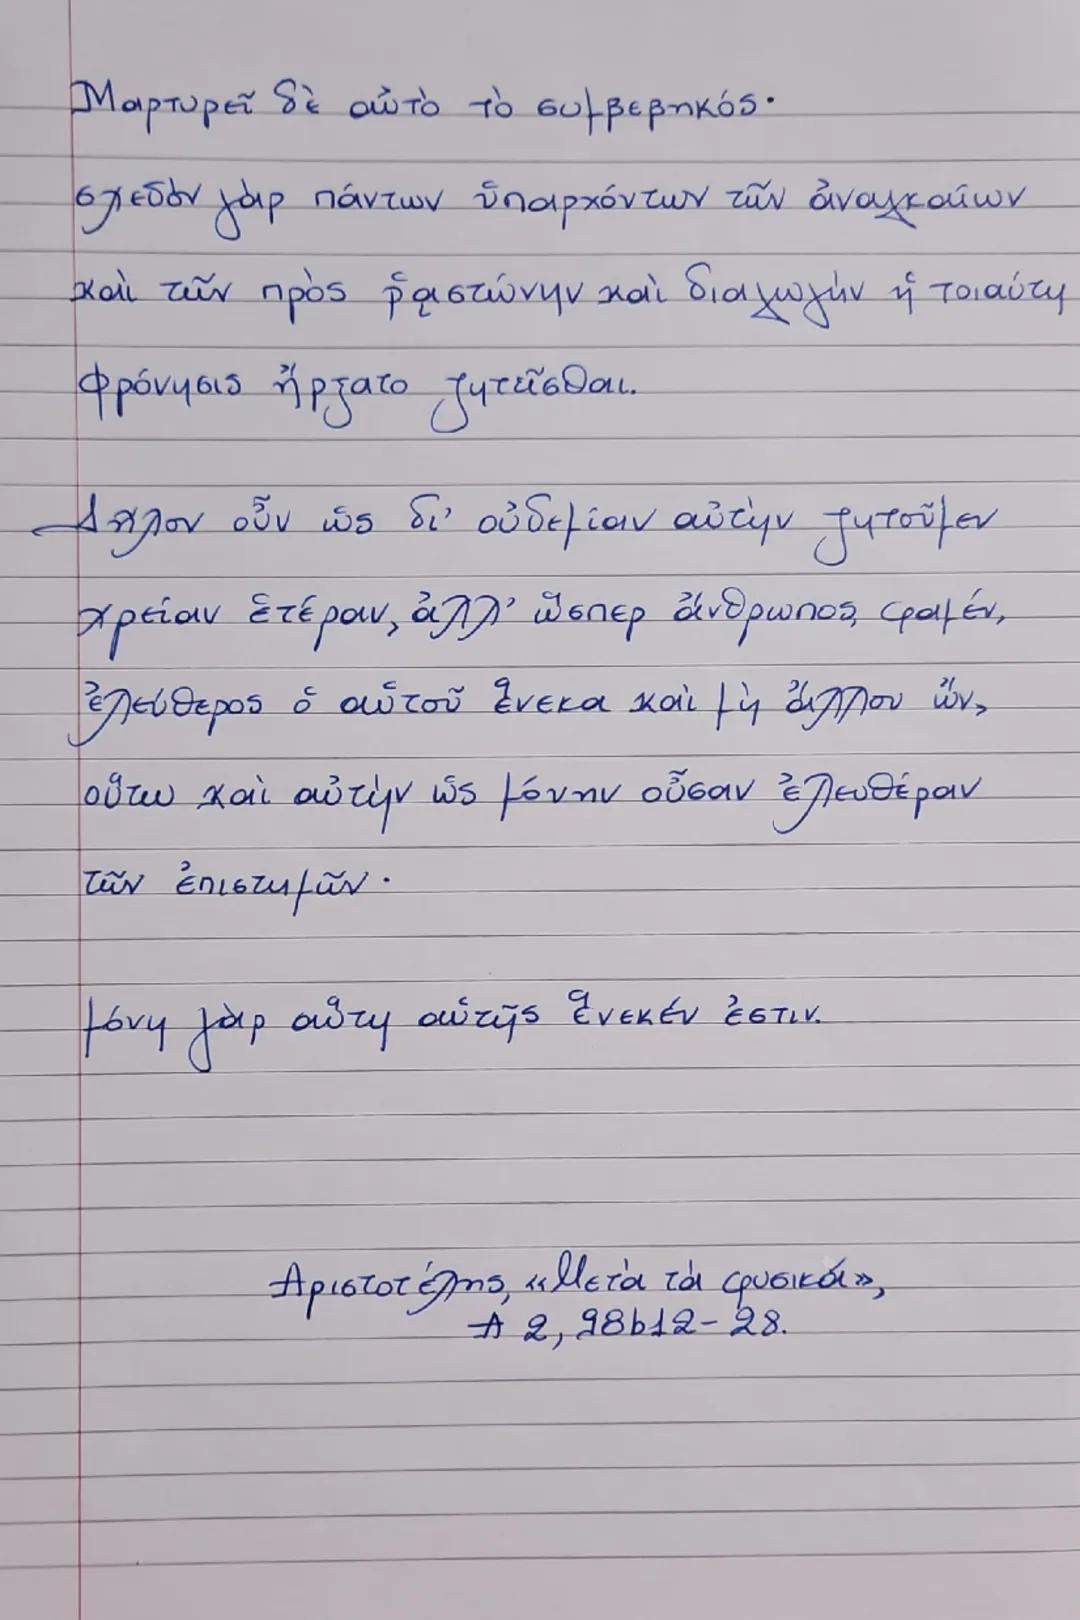 Μαρτυρεῖ δὲ αὐτὸ τὸ συμβεβηκός·
σχεδὸν γὰρ πάντων ὑπαρχόντων τῶν ἀναγκαίων
καὶ τῶν πρὸς ῥᾳστώνην καὶ διαγωγὴν ἡ τοιαύτη
φρόνησις ἤρξατο ζητεῖσθαι.
Δῆλον οὖν ὡς δι' οὐδεμίαν αὐτὴν ζητοῦμεν
χρείαν ἑτέραν, ἀλλ' ὥσπερ ἄνθρωπος, φαμέν,
ἐλεύθερος ὁ αὑτοῦ ἕνεκα καὶ μὴ ἄλλου ὤν,
οὕτω καὶ αὐτὴν ὡς μόνην οὖσαν ἐλευθέραν
τῶν ἐπιστημῶν·
μόνη γὰρ αὕτη αὑτῆς ἕνεκέν ἐστιν.
Ἀριστοτέλης, «Μετὰ τὰ φυσικά»,
Α 2, 98b12-28.